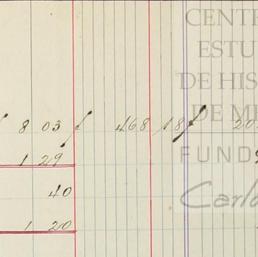 CENTR
ESTU
DE HIS
DE M
8 03 468 18 20
FUND
1 29
40
Carlo
1 20